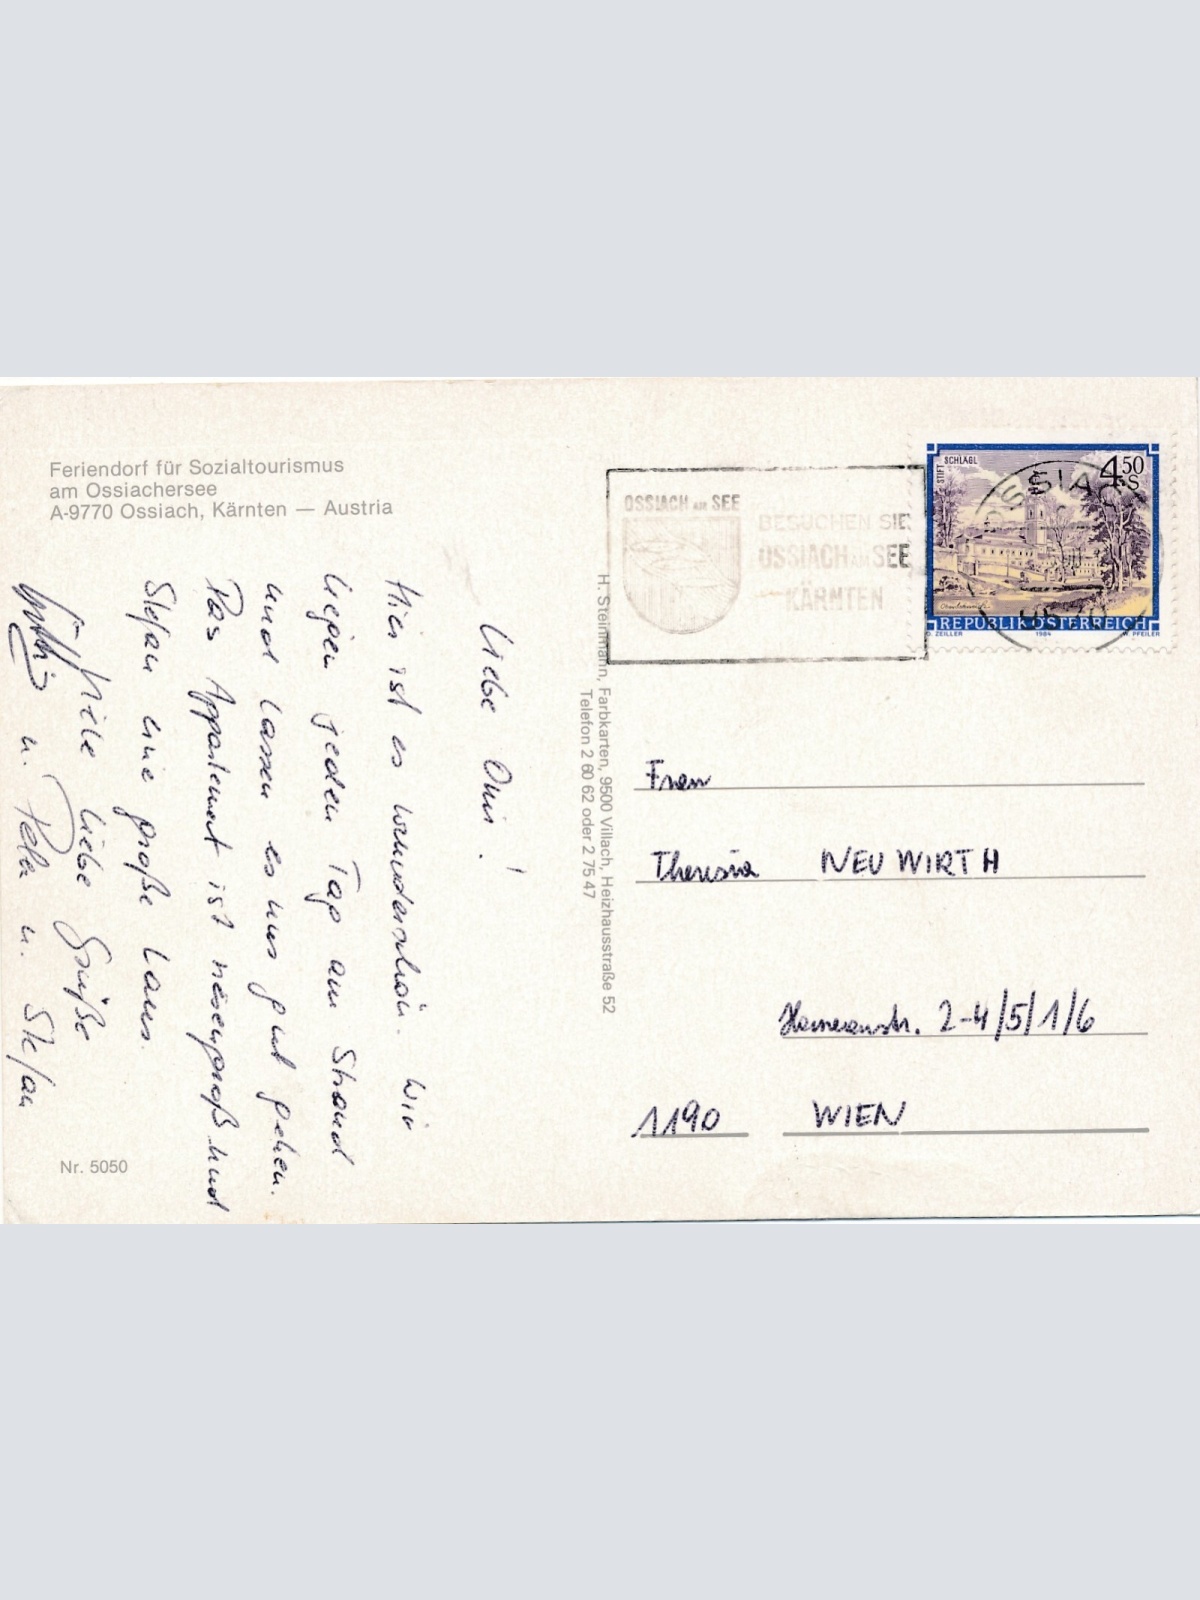 Feriendorf für Sozialtourismus
am Ossiachersee
A-9770 Ossiach, Kärnten — Austria
Liebe Omi!
Hier ist es wunderschön. Wir
liegen jeden Tag am Strand
und lassen es uns gut gehen.
Das Appartement ist riesengroß und
Stefan eine große Laus.
Viele liebe Grüße
u. Peter u. Stefan
Nr. 5050
H. Steinmann, Farbkarten, 9500 Villach, Heizhausstraße 52
Telefon 2 60 62 oder 2 75 47
OSSIACH AM SEE
BESUCHEN SIE
OSSIACH AM SEE
KÄRNTEN
STIFT SCHLÄGL
4.50 S
OSSIACH
REPUBLIK ÖSTERREICH
O. ZEILLER 1984 W. PFEILER
Frau
Theresia NEUWIRTH
Hameaustr. 2-4/5/1/6
1190 WIEN